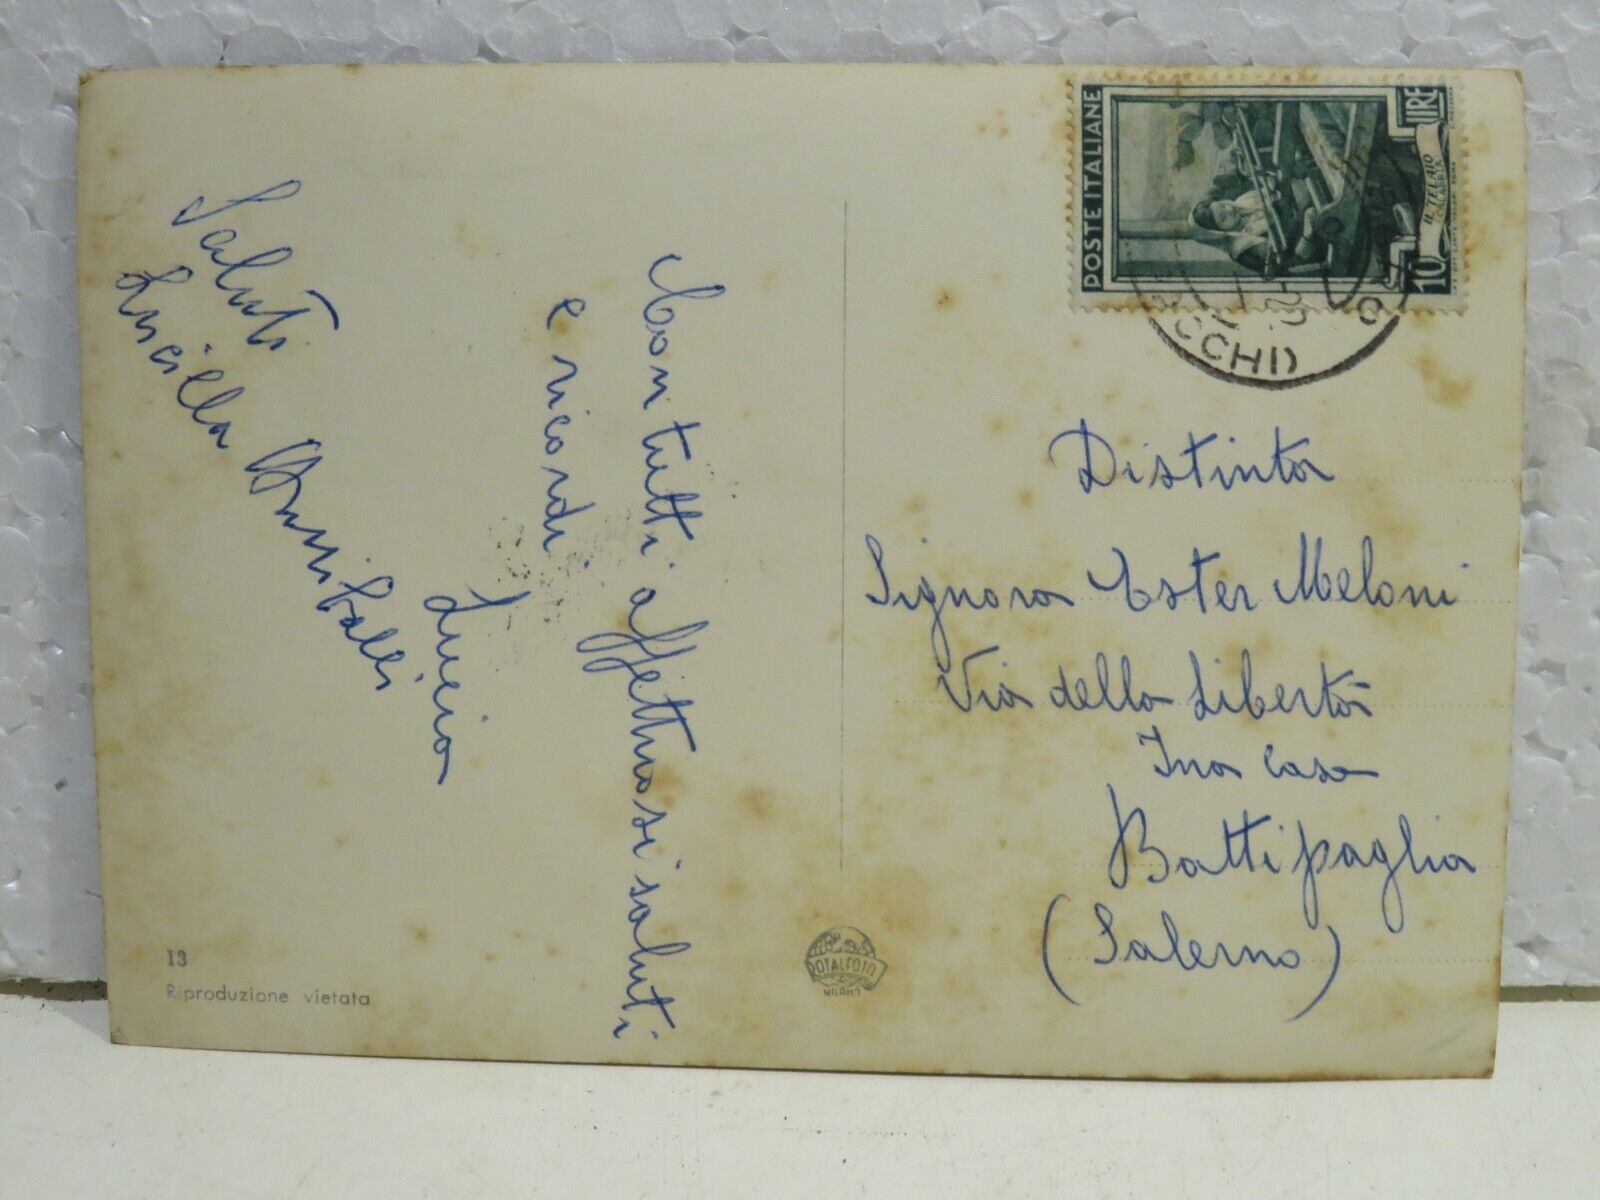 Con tutti affettuosi saluti
e ricordi.
Lucio
Saluti
Lucilla Anniballi
13
Riproduzione vietata
ROTALFOTO
MILANO
POSTE ITALIANE
10 LIRE
IL TELAIO
CALABRIA
Distinta
Signora Ester Meloni
Via della Libertà
Ina Case
Battipaglia
(Salerno)